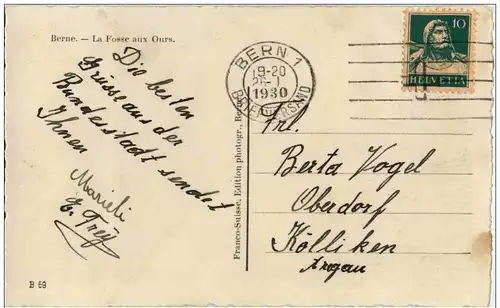 Berne. — La Fosse aux Ours.
Die besten
Grüsse aus der
Bundesstadt sendet
Ihnen
Marieli
E. Frey
B 69
Franco-Suisse. Edition photogr.,
BERN 1
19-20
1930
BRIEFVERSAND
10
HELVETIA
Frl.
Berta Vogel
Oberdorf
Kölliken
Argau